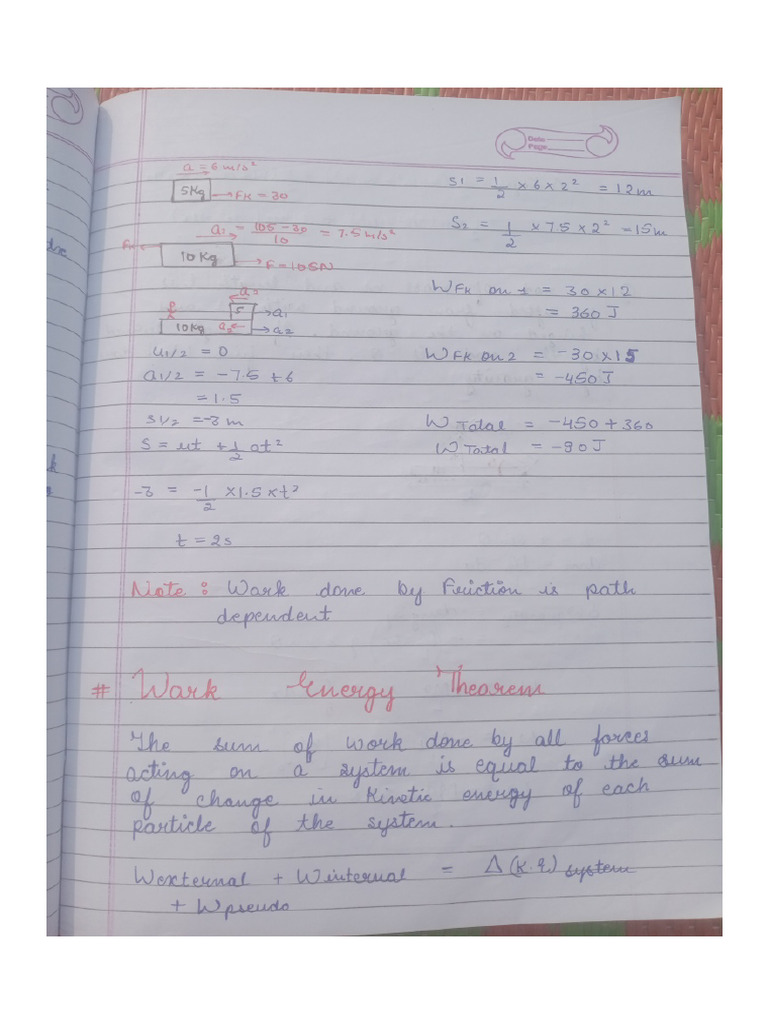 Date
Page
a = 6 m/s²
5Kg → FK = 30
a₂ = 105 - 30 / 10 = 7.5 m/s²
10 Kg
F = 105N
5 → a1
10Kg → a2
u1/2 = 0
a1/2 = -7.5 + 6
= 1.5
s1/2 = -3 m
S = ut + 1/2 at²
-3 = -1/2 x 1.5 x t²
t = 2s
S1 = 1/2 x 6 x 2² = 12m
S2 = 1/2 x 7.5 x 2² = 15m
WFK on 1 = 30 x 12
= 360 J
WFK on 2 = -30 x 15
= -450 J
W Total = -450 + 360
W Total = -90 J
Note : Work done by Friction is path
dependent
# Work Energy Theorem
The sum of work done by all forces
acting on a system is equal to the sum
of change in Kinetic energy of each
particle of the system.
Wexternal + Winternal = Δ(K.E) system
+ Wpseudo